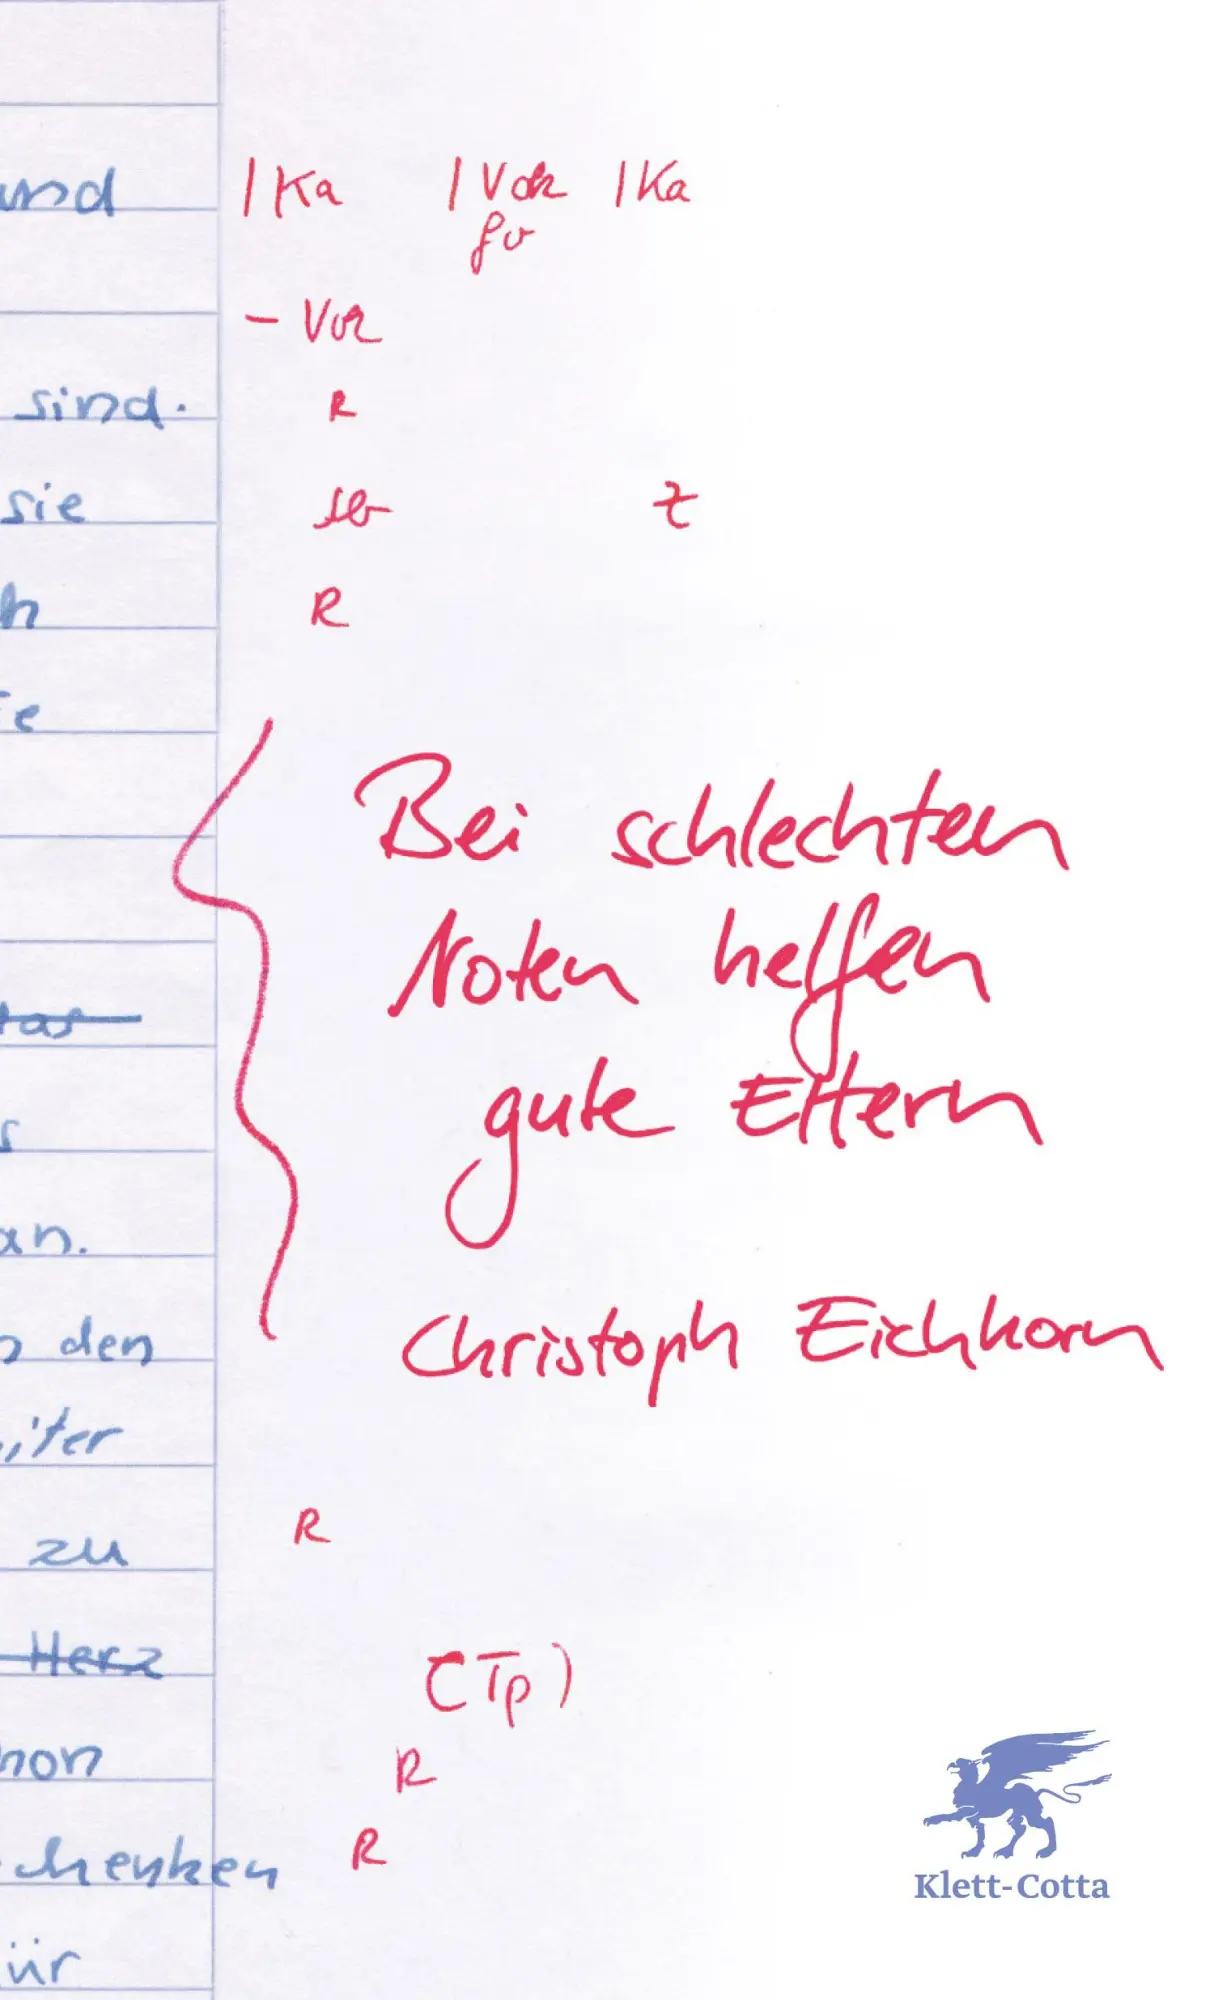 und |Ka |Vok |Ka
fv
- Vok
sind. R
sie sb Z
h R
te
Bei schlechten
Noten helfen
gute Eltern
s
an.
Christoph Eichhorn
den
iter
zu R
Herz (Tp)
hon R
chenken R
ür
Klett-Cotta